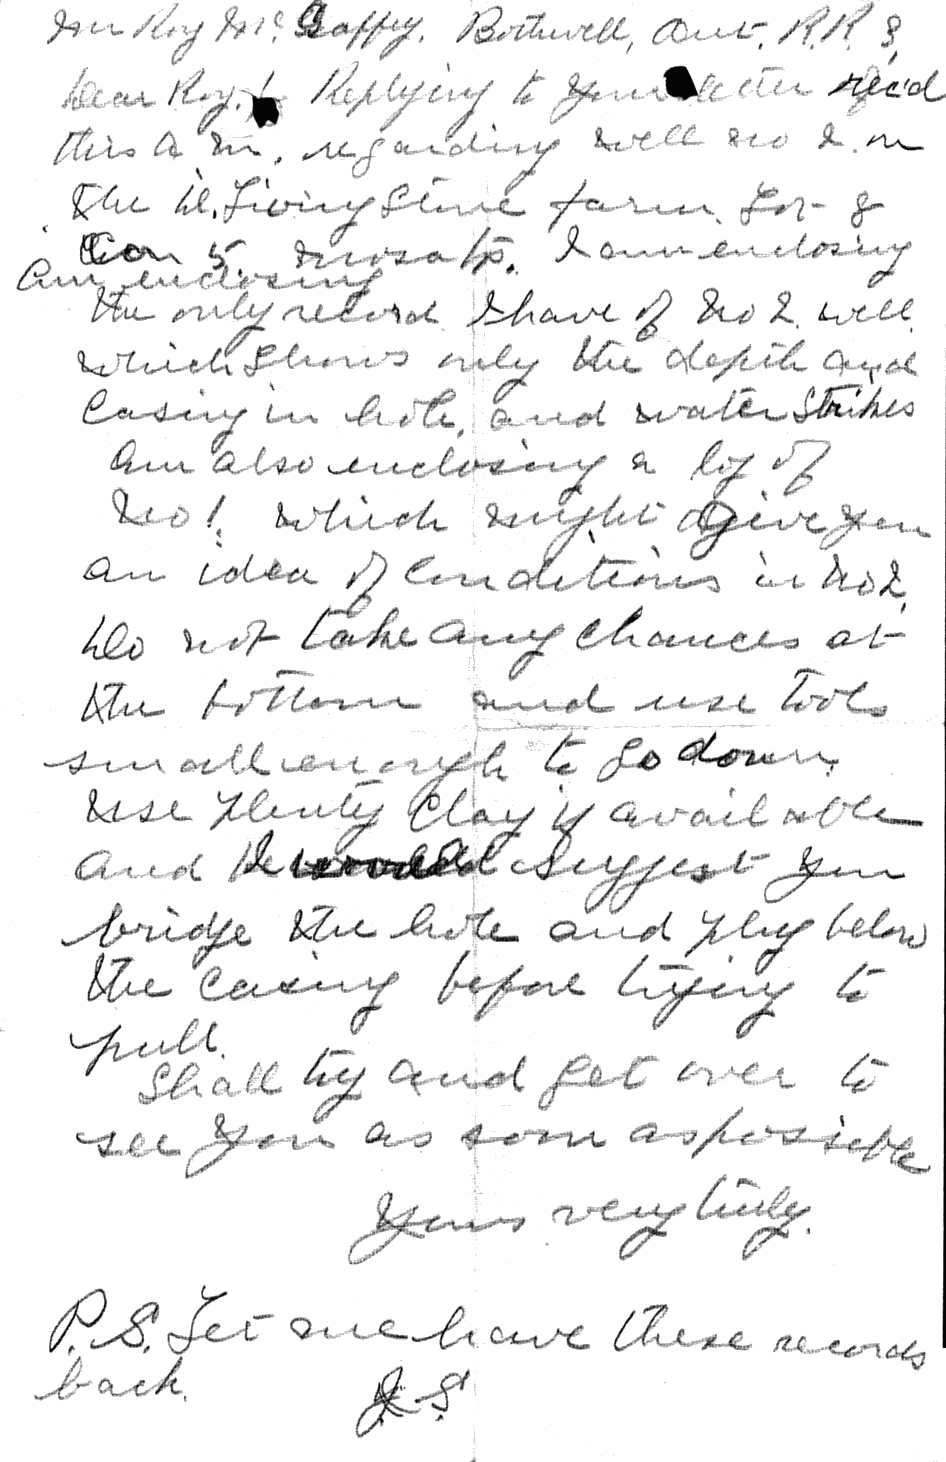 Mr Roy Mc Gaffey. Bothwell, Ont. R.R. 3,
Dear Roy. Replying to your letter rec'd
this A.M. regarding well no 2. on
the D. Livingstone farm. Lot 8
Con 5 Mosa tp. I am enclosing
am enclosing
the only record I have of No 2. well
which shows only the depth and
casing in hole, and water strikes
Am also enclosing a log of
No 1. which might give you
an idea of conditions in No 2.
Do not take any chances at
the bottom and use tools
small enough to go down.
use plenty clay if available
and I would suggest you
bridge the hole and plug below
the casing before trying to
pull.
Shall try and get over to
see you as soon as possible
Yours very truly.
P.S. Let me have these records
back. S.